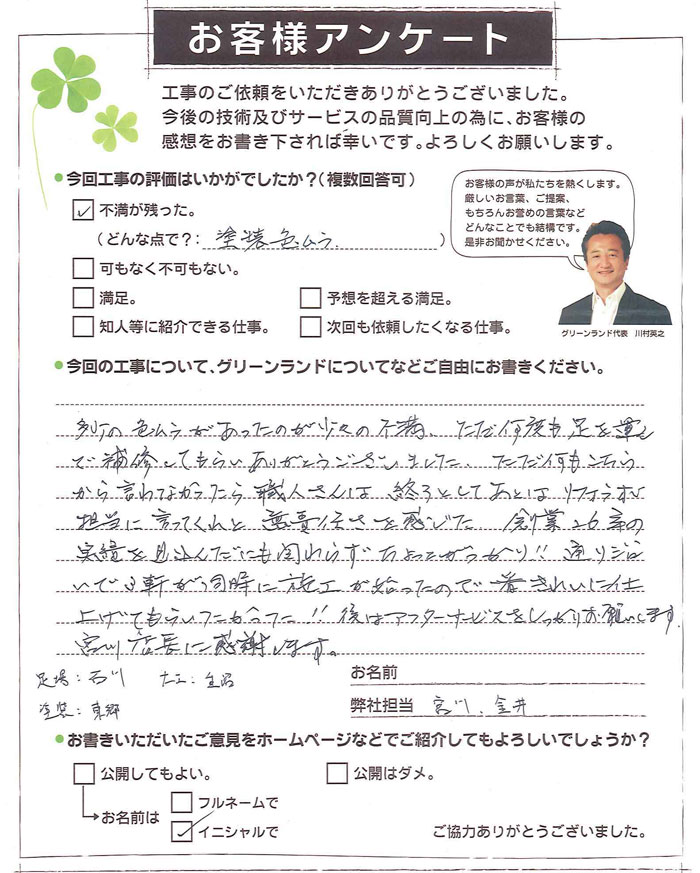 お客様アンケート
工事のご依頼をいただきありがとうございました。
今後の技術及びサービスの品質向上の為に、お客様の
感想をお書き下されば幸いです。よろしくお願いします。
●今回工事の評価はいかがでしたか?(複数回答可)
お客様の声が私たちを熱くします。
厳しいお言葉、ご提案、
もちろんお誉めの言葉など
どんなことでも結構です。
是非お聞かせください。
グリーンランド代表 川村英之
不満が残った。
(どんな点で?: 塗装色ムラ )
可もなく不可もない。
満足。 予想を超える満足。
知人等に紹介できる仕事。 次回も依頼したくなる仕事。
●今回の工事について、グリーンランドについてなどご自由にお書きください。
多少の色ムラがあったのが少々の不満、ただ何度も足を運ん
で補修してもらいありがとうございました、ただ何もこちら
から言わなかったら職人さんは終了としてあとはリフォーム
担当に言ってくれと無責任さを感じた 創業26年の
実績を見込んだにも関わらずちょっとがっかり!! 通り沿
いで3軒が同時に施工が始ったので一番きれいに仕
上げてもらいたかった!! 後はアフターサービスをしっかりお願いします
宮川店長に感謝します。
足場:石川 大工:
塗装:東郷
お名前
弊社担当 宮川、金井
●お書きいただいたご意見をホームページなどでご紹介してもよろしいでしょうか?
公開してもよい。 公開はダメ。
お名前は フルネームで
イニシャルで
ご協力ありがとうございました。